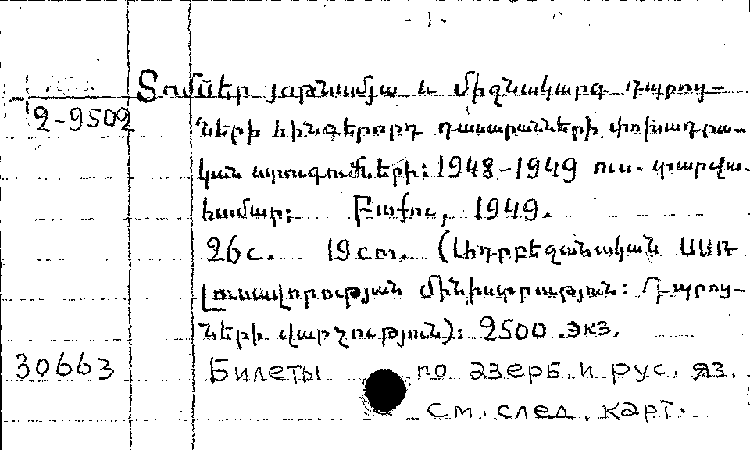 - 1 -
Տոմսեր յոթնամյա և միջնակարգ դպրոց-
2-9502
ների հինգերորդ դասարանների փոխադրա-
կան քննությունների: 1948-1949 ուս. տարվա
համար: Բաքու, 1949.
26 с. 19 см. (Ադրբեջանական ՍՍՌ
Լուսավորության Մինիստրություն: Դպրոց-
ների վարչություն): 2500 экз.
30663 Билеты по азерб. и рус. яз.
см. след. карт.